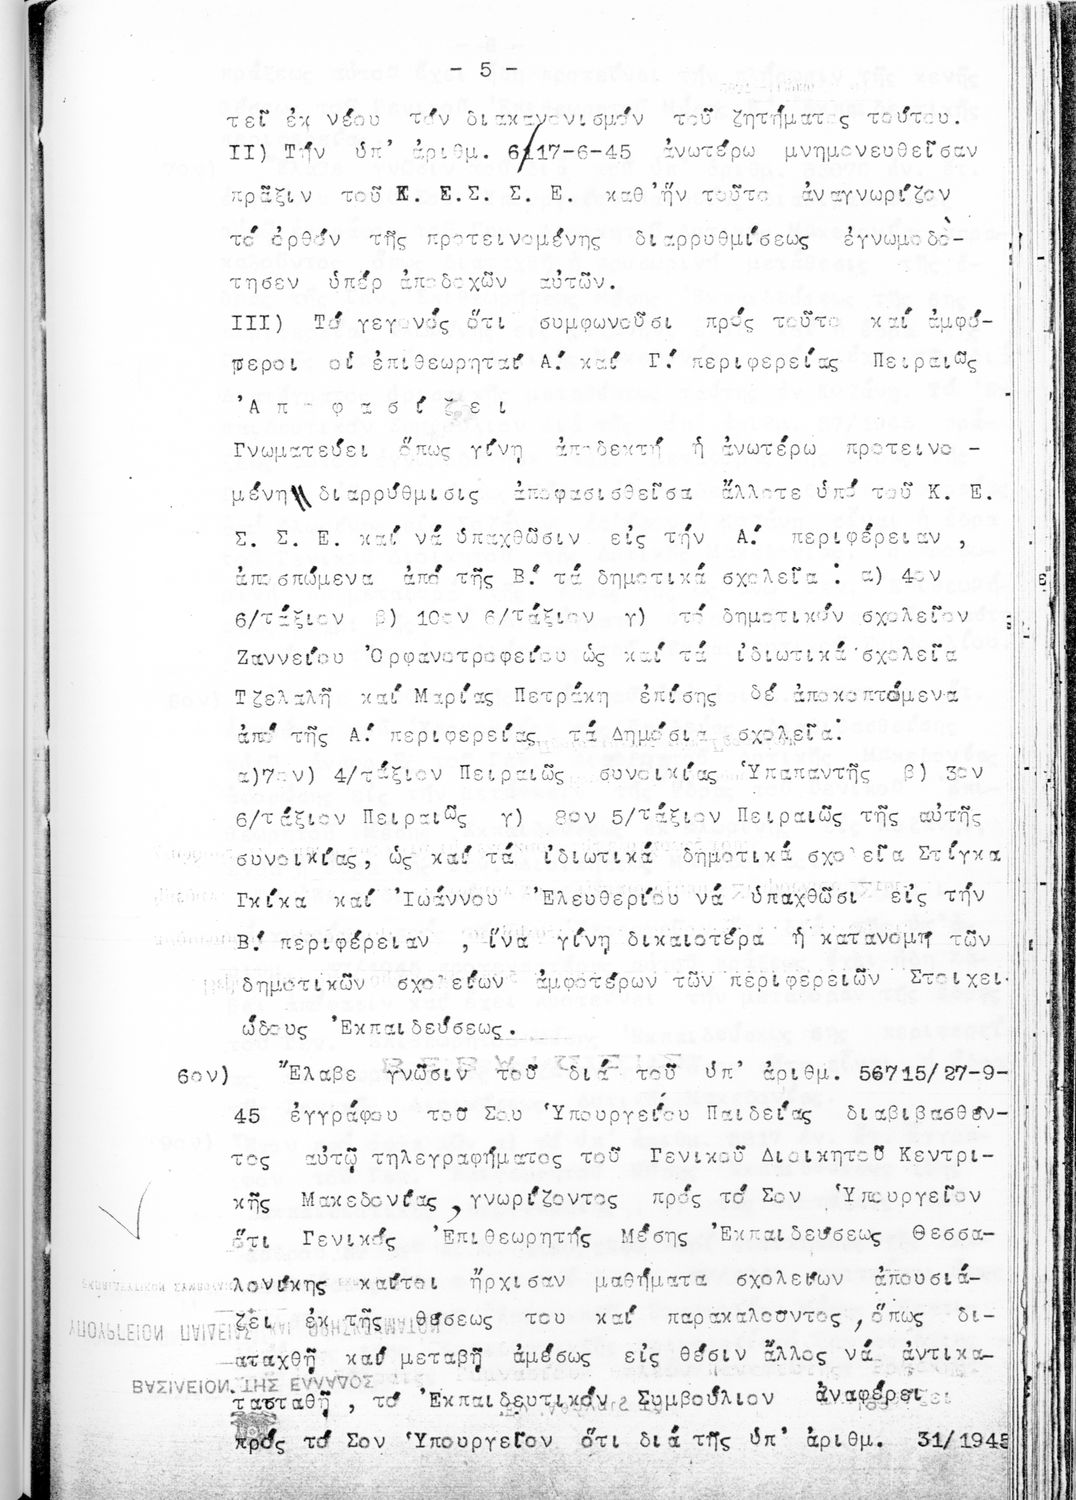 - 5 -
τεῖ ἐκ νέου τόν διακανονισμόν τοῦ ζητήματος τούτου.
ΙΙ) Τήν ὑπ' ἀριθμ. 6/17-6-45 ἀνωτέρω μνημονευθεῖσαν
πρᾶξιν τοῦ Κ. Ε.Σ. Σ. Ε. καθ'ἥν τοῦτο ἀναγνωρίζον
τό ὀρθόν τῆς προτεινομένης διαρρυθμίσεως ἐγνωμοδό-
τησεν ὑπέρ ἀποδοχῶν αὐτῶν.
ΙΙΙ) Τό γεγονός ὅτι συμφωνοῦσι πρός τοῦτο καί ἀμφό-
τεροι οἱ ἐπιθεωρηταί Α.' καί Γ.' περιφερείας Πειραιῶς
'Α π ο φ α σ ί ζ ε ι
Γνωματεύει ὅπως γίνη ἀποδεκτή ἡ ἀνωτέρω προτεινο -
μένη διαρρύθμισις ἀποφασισθεῖσα ἄλλοτε ὑπό τοῦ Κ. Ε.
Σ. Σ. Ε. καί νά ὑπαχθῶσιν εἰς τήν Α.' περιφέρειαν ,
ἀποσπώμενα ἀπό τῆς Β.' τά δημοτικά σχολεῖα : α) 4ον
6/τάξιον β) 10ον 6/τάξιον γ) τό δημοτικόν σχολεῖον
Ζαννείου 'Ορφανοτροφείου ὡς καί τά ἰδιωτικά σχολεῖα
Τζελαλῆ καί Μαρίας Πετράκη ἐπίσης δέ ἀποκοπτόμενα
ἀπό τῆς Α.' περιφερείας τά Δημόσια σχολεῖα:
α)7ον) 4/τάξιον Πειραιῶς συνοικίας 'Υπαπαντῆς β) 3ον
6/τάξιον Πειραιῶς γ) 8ον 5/τάξιον Πειραιῶς τῆς αὐτῆς
συνοικίας, ὡς καί τά ἰδιωτικά δημοτικά σχολεῖα Στίγκα
Γκίκα καί 'Ιωάννου 'Ελευθερίου νά ὑπαχθῶσι εἰς τήν
Β.' περιφέρειαν , ἵνα γίνη δικαιοτέρα ἡ κατανομή τῶν
δημοτικῶν σχολείων ἀμφοτέρων τῶν περιφερειῶν Στοιχει-
ώδους 'Εκπαιδεύσεως.
6ον) "Ελαβε γνῶσιν τοῦ διά τοῦ ὑπ' ἀριθμ. 56715/27-9-
45 ἐγγράφου τοῦ Σου 'Υπουργείου Παιδείας διαβιβασθέν-
τος αὐτῷ τηλεγραφήματος τοῦ Γενικοῦ Διοικητοῦ Κεντρι-
κῆς Μακεδονίας, γνωρίζοντος πρός τό Σον 'Υπουργεῖον
ὅτι Γενικός 'Επιθεωρητής Μέσης 'Εκπαιδεύσεως Θεσσα-
λονίκης καίτοι ἤρχισαν μαθήματα σχολείων ἀπουσιά-
ζει ἐκ τῆς θέσεως του καί παρακαλοῦντος, ὅπως δι-
αταχθῆ καί μεταβῆ ἀμέσως εἰς θέσιν ἄλλος νά ἀντικα-
τασταθῆ , τό 'Εκπαιδευτικόν Συμβούλιον ἀναφέρει
πρός τό Σον 'Υπουργεῖον ὅτι διά τῆς ὑπ' ἀριθμ. 31/1945